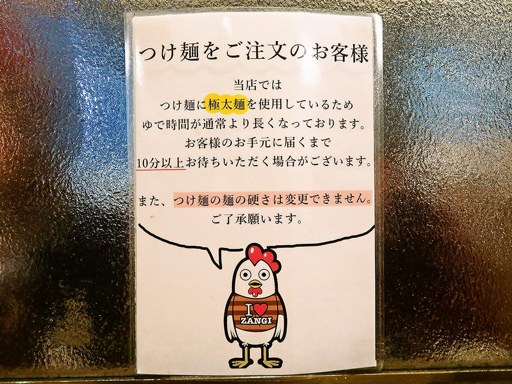 つけ麺をご注文のお客様
当店では
つけ麺に極太麺を使用しているため
ゆで時間が通常より長くなっております。
お客様のお手元に届くまで
10分以上お待ちいただく場合がございます。
また、つけ麺の麺の硬さは変更できません。
ご了承願います。
I❤
ZANGI